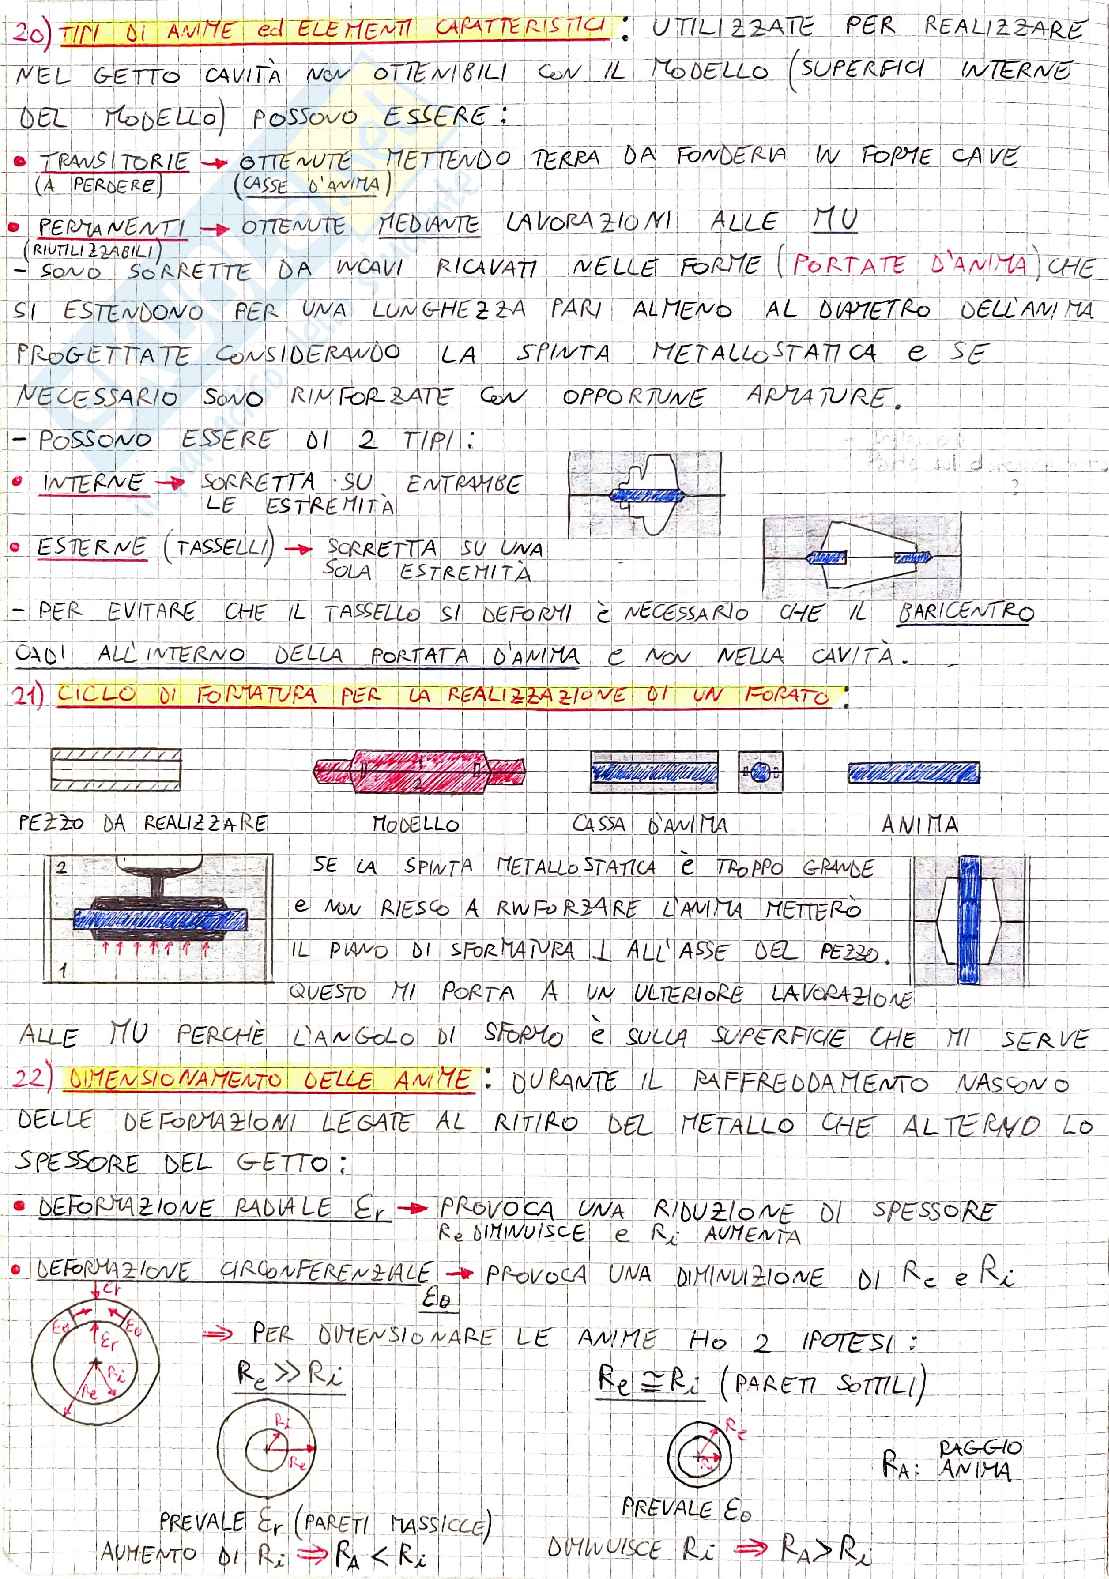 20) TIPI DI ANIME ed ELEMENTI CARATTERISTICI: UTILIZZATE PER REALIZZARE
NEL GETTO CAVITÀ NON OTTENIBILI CON IL MODELLO (SUPERFICI INTERNE
DEL MODELLO) POSSONO ESSERE:
• TRANSITORIE → OTTENUTE METTENDO TERRA DA FONDERIA IN FORME CAVE
(A PERDERE) (CASSE D'ANIMA)
• PERMANENTI → OTTENUTE MEDIANTE LAVORAZIONI ALLE MU
(RIUTILIZZABILI)
- SONO SORRETTE DA INCAVI RICAVATI NELLE FORME (PORTATE D'ANIMA) CHE
SI ESTENDONO PER UNA LUNGHEZZA PARI ALMENO AL DIAMETRO DELL'ANIMA
PROGETTATE CONSIDERANDO LA SPINTA METALLOSTATICA e SE
NECESSARIO SONO RINFORZATE CON OPPORTUNE ARMATURE.
- POSSONO ESSERE DI 2 TIPI:
• INTERNE → SORRETTA SU ENTRAMBE
LE ESTREMITÀ
• ESTERNE (TASSELLI) → SORRETTA SU UNA
SOLA ESTREMITÀ
- PER EVITARE CHE IL TASSELLO SI DEFORMI È NECESSARIO CHE IL BARICENTRO
CADI ALL'INTERNO DELLA PORTATA D'ANIMA e NON NELLA CAVITÀ.
21) CICLO DI FORMATURA PER LA REALIZZAZIONE DI UN FORATO:
PEZZO DA REALIZZARE MODELLO CASSA D'ANIMA ANIMA
2
1
SE LA SPINTA METALLOSTATICA È TROPPO GRANDE
e NON RIESCO A RINFORZARE L'ANIMA METTERÒ
IL PIANO DI SFORMATURA ⊥ ALL'ASSE DEL PEZZO.
QUESTO MI PORTA A UN ULTERIORE LAVORAZIONE
ALLE MU PERCHÈ L'ANGOLO DI SFORMO È SULLA SUPERFICIE CHE MI SERVE
22) DIMENSIONAMENTO DELLE ANIME: DURANTE IL RAFFREDDAMENTO NASCONO
DELLE DEFORMAZIONI LEGATE AL RITIRO DEL METALLO CHE ALTERANO LO
SPESSORE DEL GETTO:
• DEFORMAZIONE RADIALE εr → PROVOCA UNA RIDUZIONE DI SPESSORE
Re DIMINUISCE e Ri AUMENTA
• DEFORMAZIONE CIRCONFERENZIALE → PROVOCA UNA DIMINUIZIONE DI Re e Ri
εθ
εr
εθ εθ
εr
Ri
Re
⇒ PER DIMENSIONARE LE ANIME HO 2 IPOTESI:
Re ≫ Ri Re ≅ Ri (PARETI SOTTILI)
Ri
Re
Re
Ri
RA: RAGGIO
ANIMA
PREVALE εr (PARETI MASSICCE) PREVALE εθ
AUMENTO DI Ri ⇒ RA < Ri DIMINUISCE Ri ⇒ RA > Ri